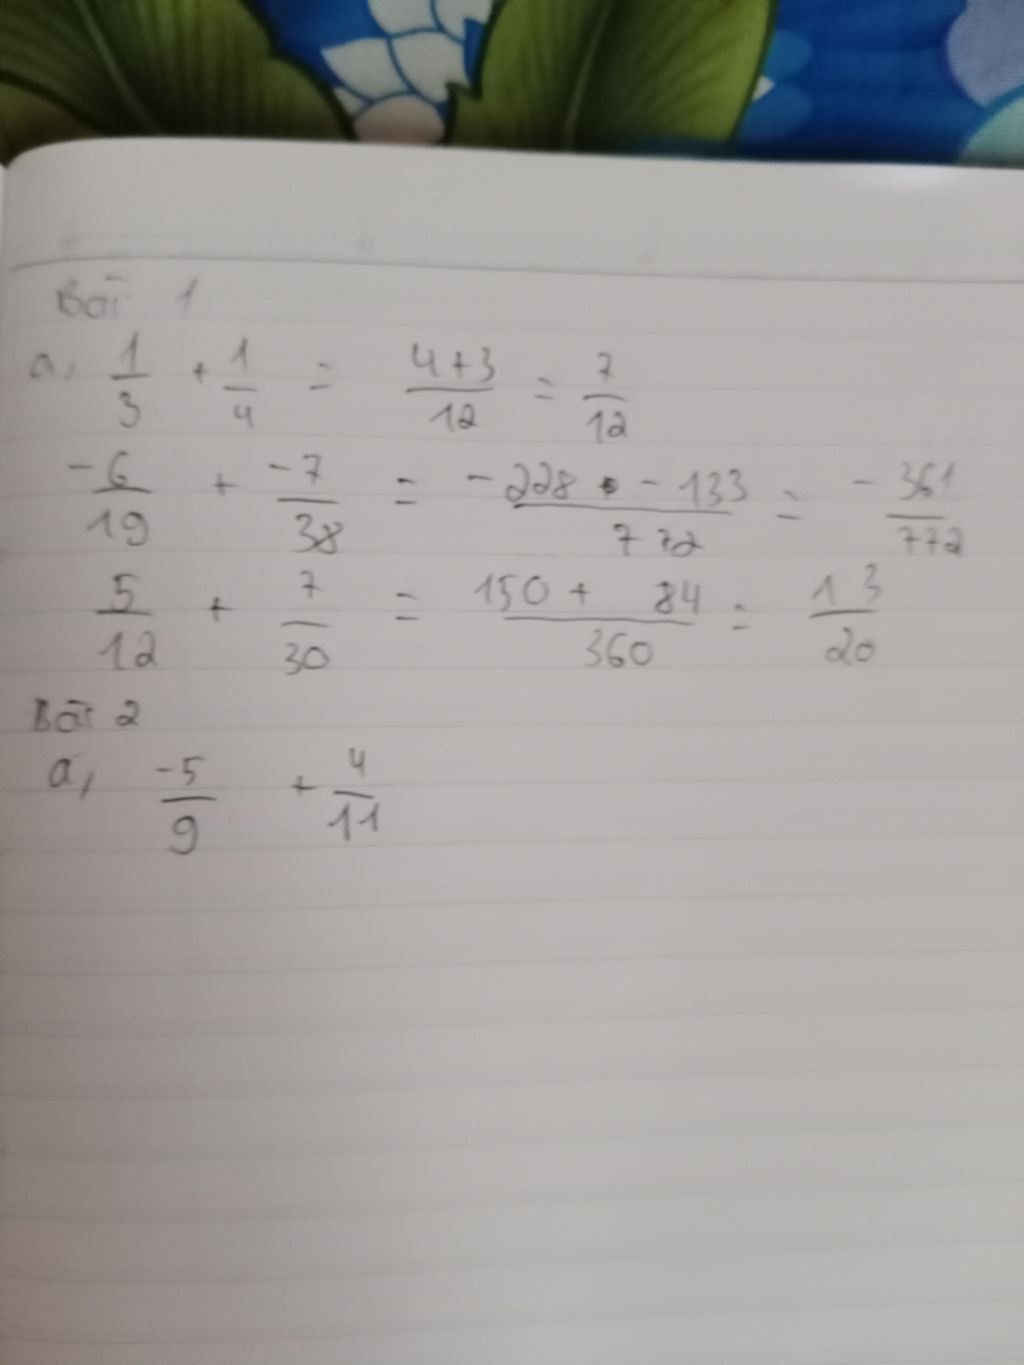 Bài 1
a, 1/3 + 1/4 = 4+3/12 = 7/12
-6/19 + -7/38 = -228 • -133/772 = -361/772
5/12 + 7/30 = 150 + 84/360 = 13/20
Bài 2
a, -5/9 + 4/11